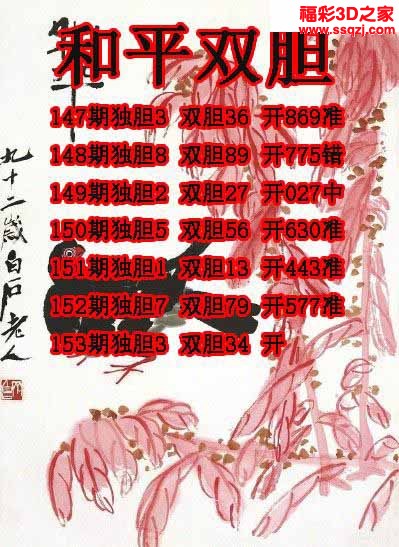 福彩3D之家
www.ssqzj.com
和平双胆
147期独胆3 双胆36 开869准
148期独胆8 双胆89 开775错
149期独胆2 双胆27 开027中
150期独胆5 双胆56 开630准
151期独胆1 双胆13 开443准
152期独胆7 双胆79 开577准
153期独胆3 双胆34 开
九十二岁白石老人